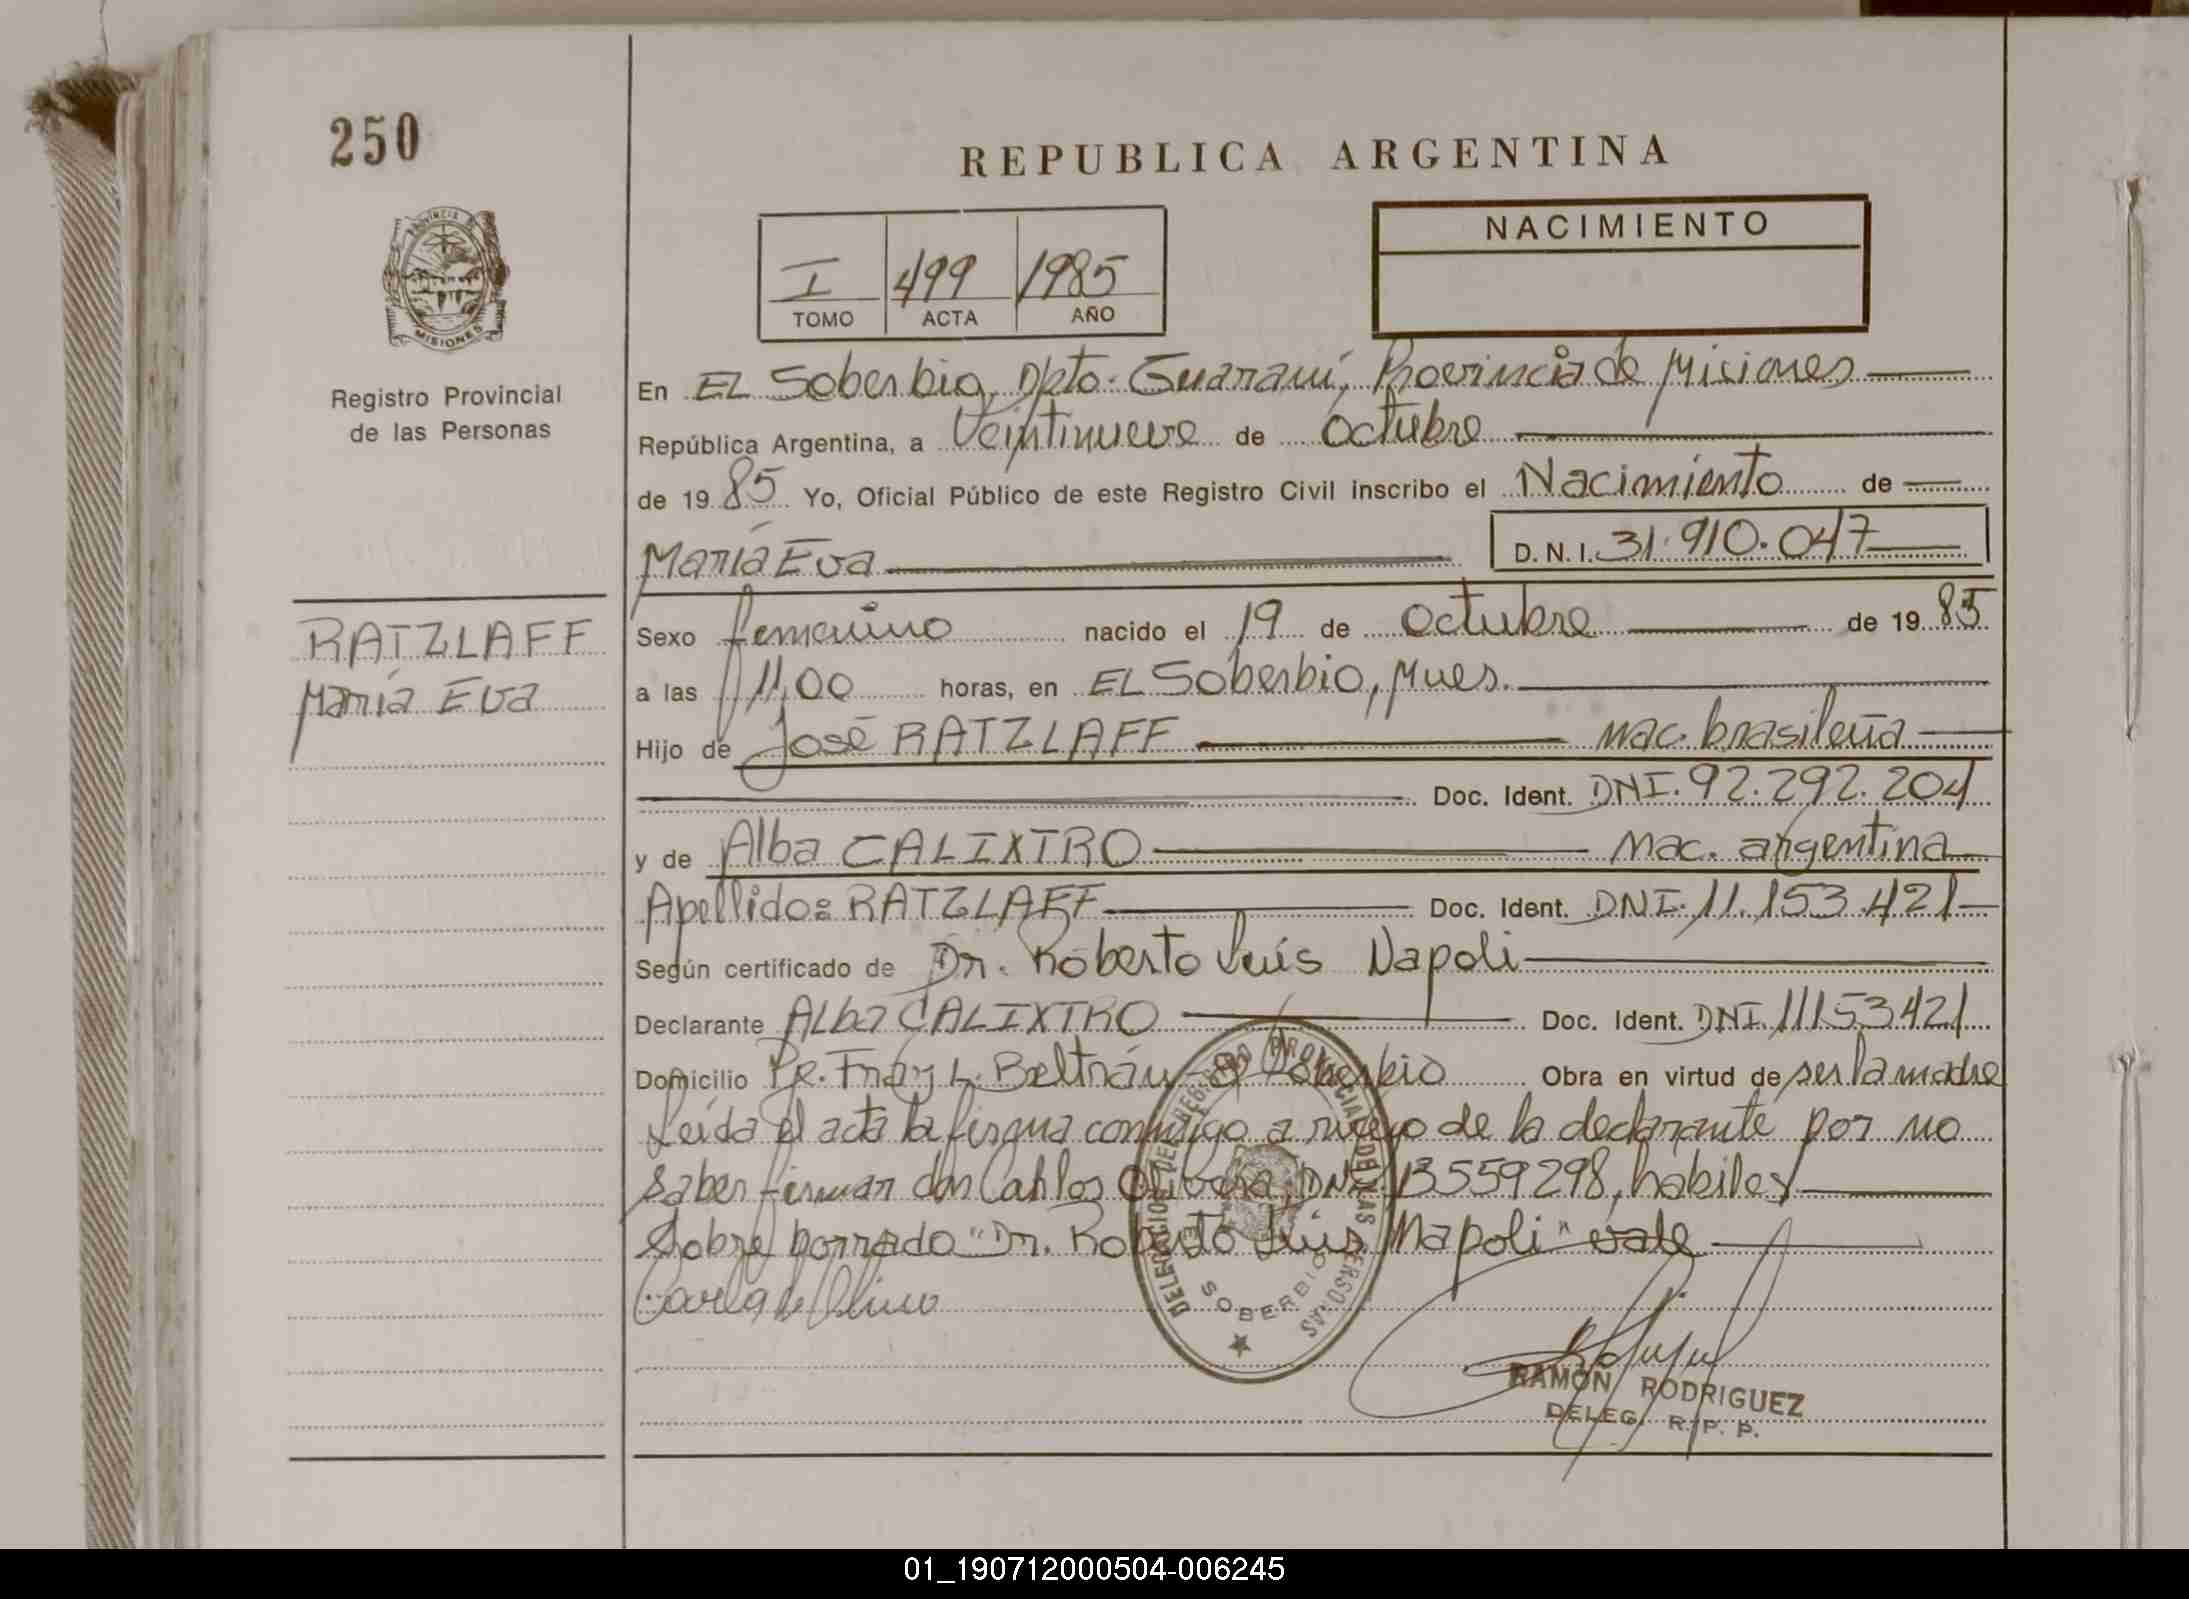 250
REPUBLICA ARGENTINA
PROVINCIA DE
MISIONES
Registro Provincial
de las Personas
I 499 1985
TOMO ACTA AÑO
NACIMIENTO
En EL Soberbio, Dpto. Guaraní, Provincia de Misiones
República Argentina, a Veintinueve de Octubre
de 1985 Yo, Oficial Público de este Registro Civil inscribo el Nacimiento de
María Eva D.N.I. 31.910.047
RATZLAFF
María Eva
Sexo femenino nacido el 19 de Octubre de 1985
a las 11,00 horas, en EL Soberbio, Mnes.
Hijo de José RATZLAFF nac. brasileña
Doc. Ident. DNI. 92.292.204
y de Alba CALIXTRO nac. argentina
Apellido: RATZLAFF Doc. Ident. DNI. 11.153.421
Según certificado de Dr. Roberto Luís Napoli
Declarante Alba CALIXTRO Doc. Ident. DNI. 11153421
Domicilio Pje. Fray L. Beltrán - El Soberbio Obra en virtud de ser la madre
Leída el acta la firma conmigo a ruego de la declarante por no
saber firmar don Carlos Olivera, DNI 13559298, habiles
Sobre borrado "Dr. Roberto Luís Napoli" vale
DELEGACION DEL REGISTRO PROVINCIAL DE LAS PERSONAS
SOBERBIO
RAMON RODRIGUEZ
DELEG. R. P. P.
01_190712000504-006245